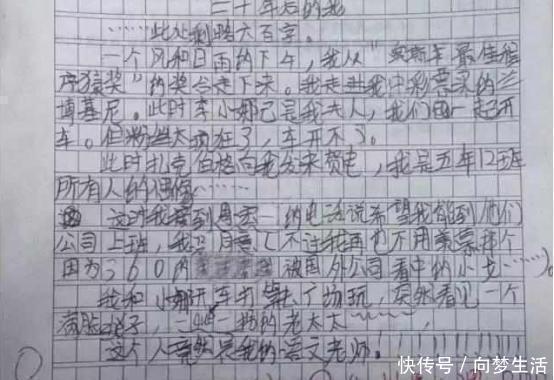 三十年后的我
……此处删略六百字。
一个风和日雨的下午，我从"奥斯卡最佳程
序猿奖"的奖台走下来。我走进我中彩票买的兰
博基尼。此时李小娜已是我夫人，我们一起开
车。但粉丝太疯狂了，车开不了。
此时扎克伯格向我发来贺电，我是五年12班
所有人的偶像……
这时我接到周 的电话说希望我能到他们
公司上班，我 同意。（不过我再也不用 那个
因为360的 被国外公司看中的小龙……）。
我和小娜开车去 了 玩，突然看见一个
满脸 子，二 二 的老太太……，
这个人竟然是我的语文老师！
快传号／向梦生活